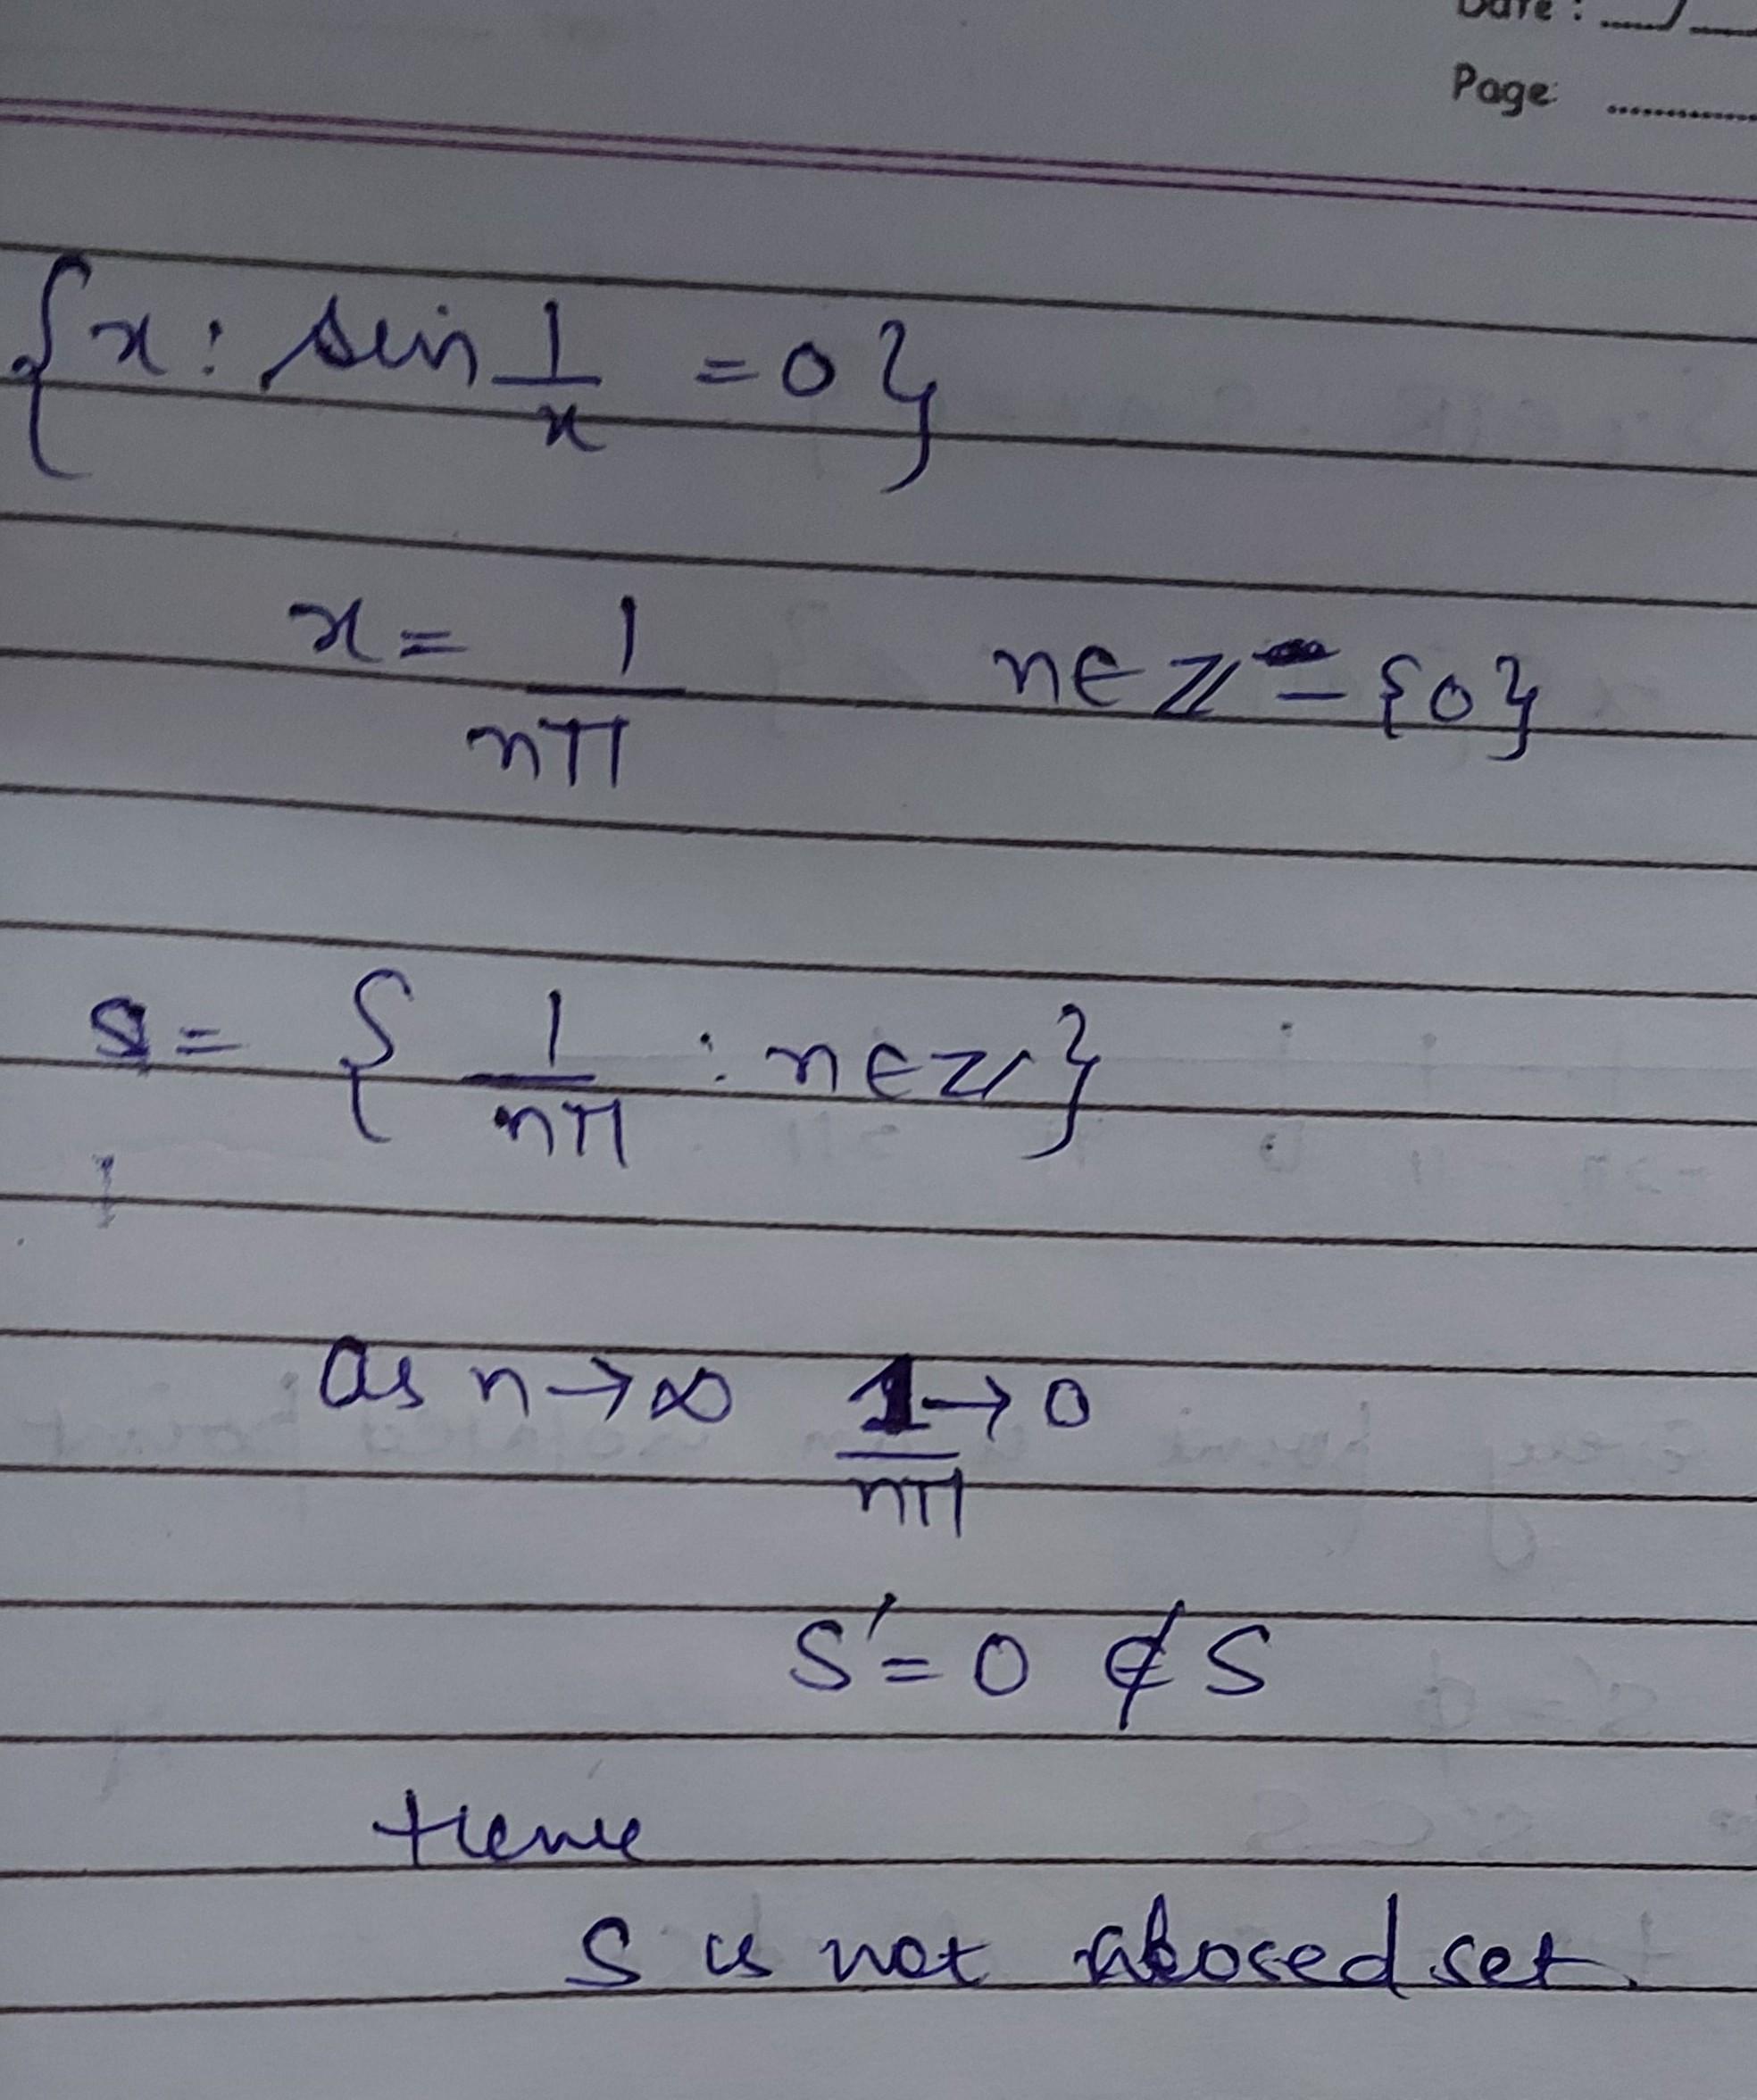 Date :
Page
{x : sin 1/x = 0}
x = 1/nπ n ∈ ℤ - {0}
S = { 1/nπ : n ∈ ℤ }
as n → ∞ 1/nπ → 0
S' = 0 ∉ S
Hence
S is not closed set.